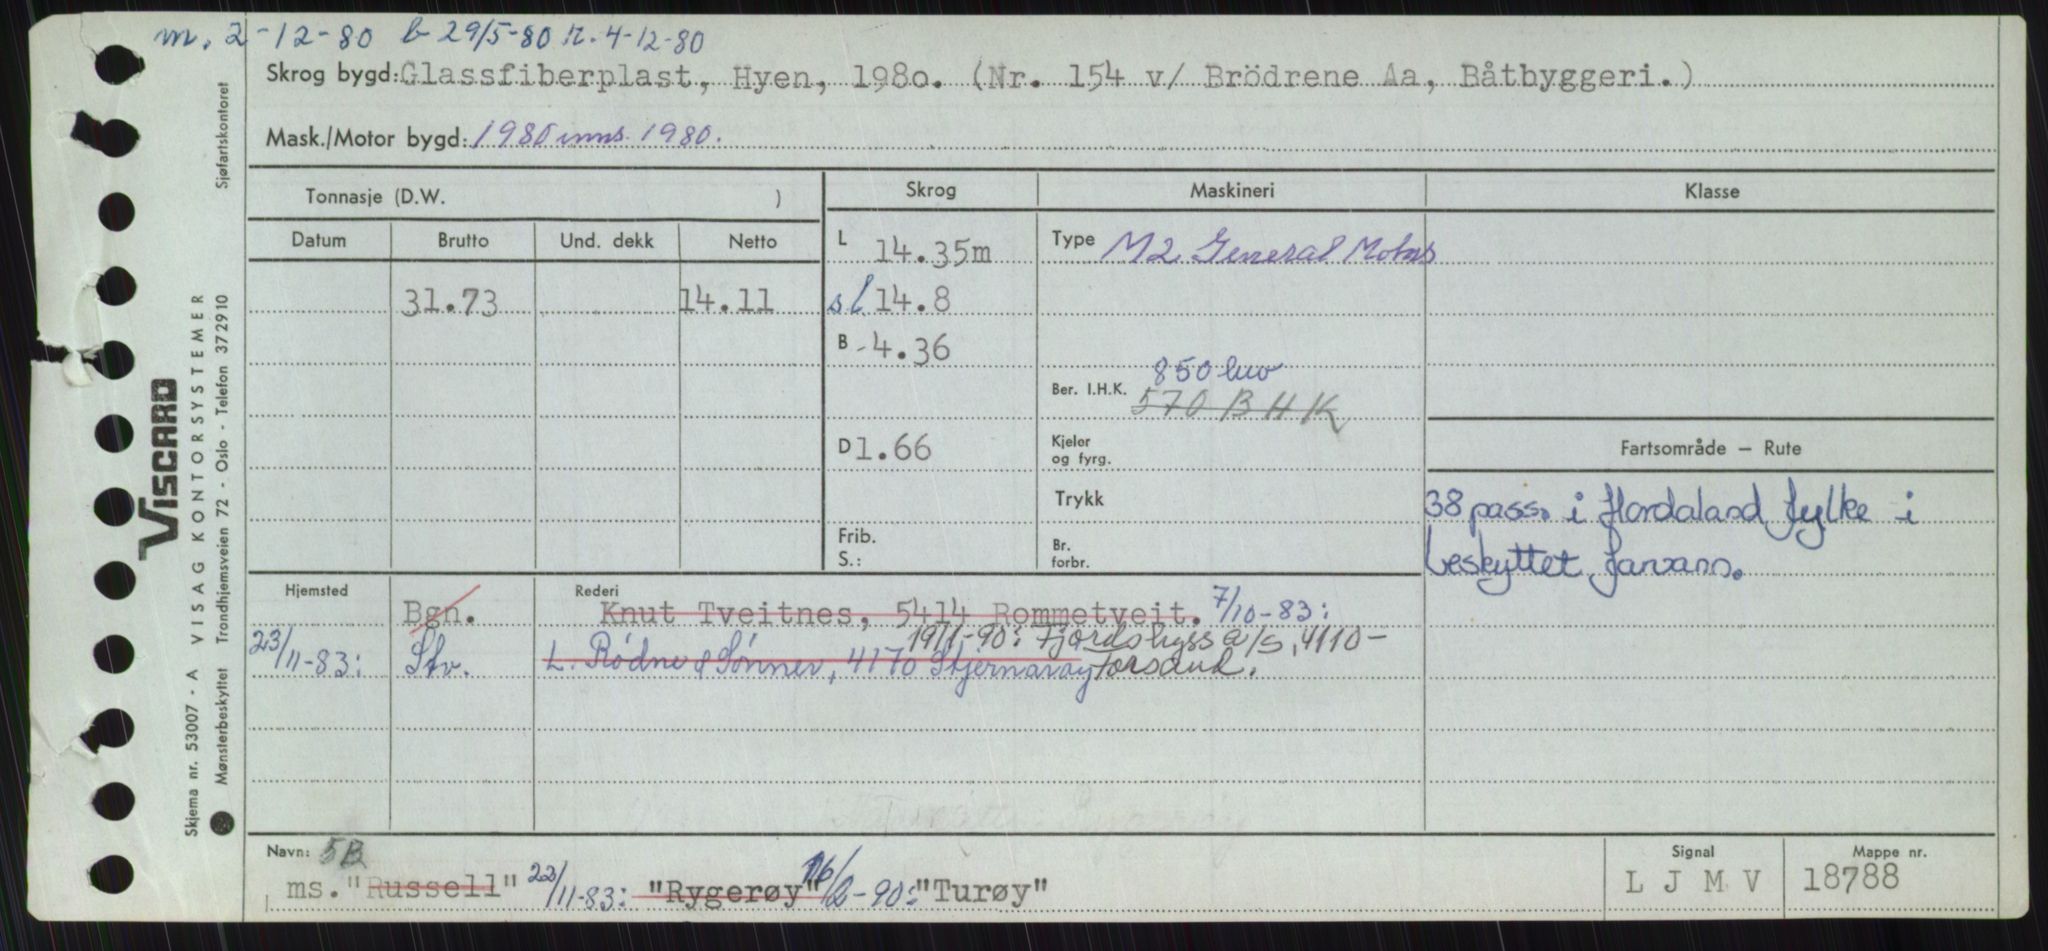 m. 2-12-80 b 29/5-80 r. 4-12-80
Skrog bygd: Glassfiberplast, Hyen, 1980. (Nr. 154 v/ Brödrene Aa, Båtbyggeri.)
Mask./Motor bygd: 1980 inns. 1980.
Tonnasje (D.W. )
Skrog
Maskineri
Klasse
Datum
Brutto
Und. dekk
Netto
L 14.35m
Type M2 General Motors
31.73
14.11
sl 14.8
B 4.36
850 hw
Ber. I.H.K. 570 BHK
D 1.66
Kjeler
og fyrg.
Fartsområde – Rute
Trykk
38 pass. i Hordaland fylke i
beskyttet farvann.
Frib.
S.:
Br.
forbr.
Hjemsted
Rederi
Bgn.
Knut Tveitnes, 5414 Rommetveit. 7/10-83:
19/1-90: Fjordskyss a/s, 4110-
23/11-83: Stv. L. Rödne & Sönner, 4170 Stjernarøy Forsand.
Navn: 5B
ms. "Russell" 23/11-83: "Rygerøy" 16/2-90: "Turøy"
Signal
L J M V
Mappe nr.
18788
VISCARD
Skjema nr. 53007 - A VISAG KONTORSYSTEMER
Mønsterbeskyttet Trondhjemsveien 72 - Oslo - Telefon 372910 Sjøfartskontoret